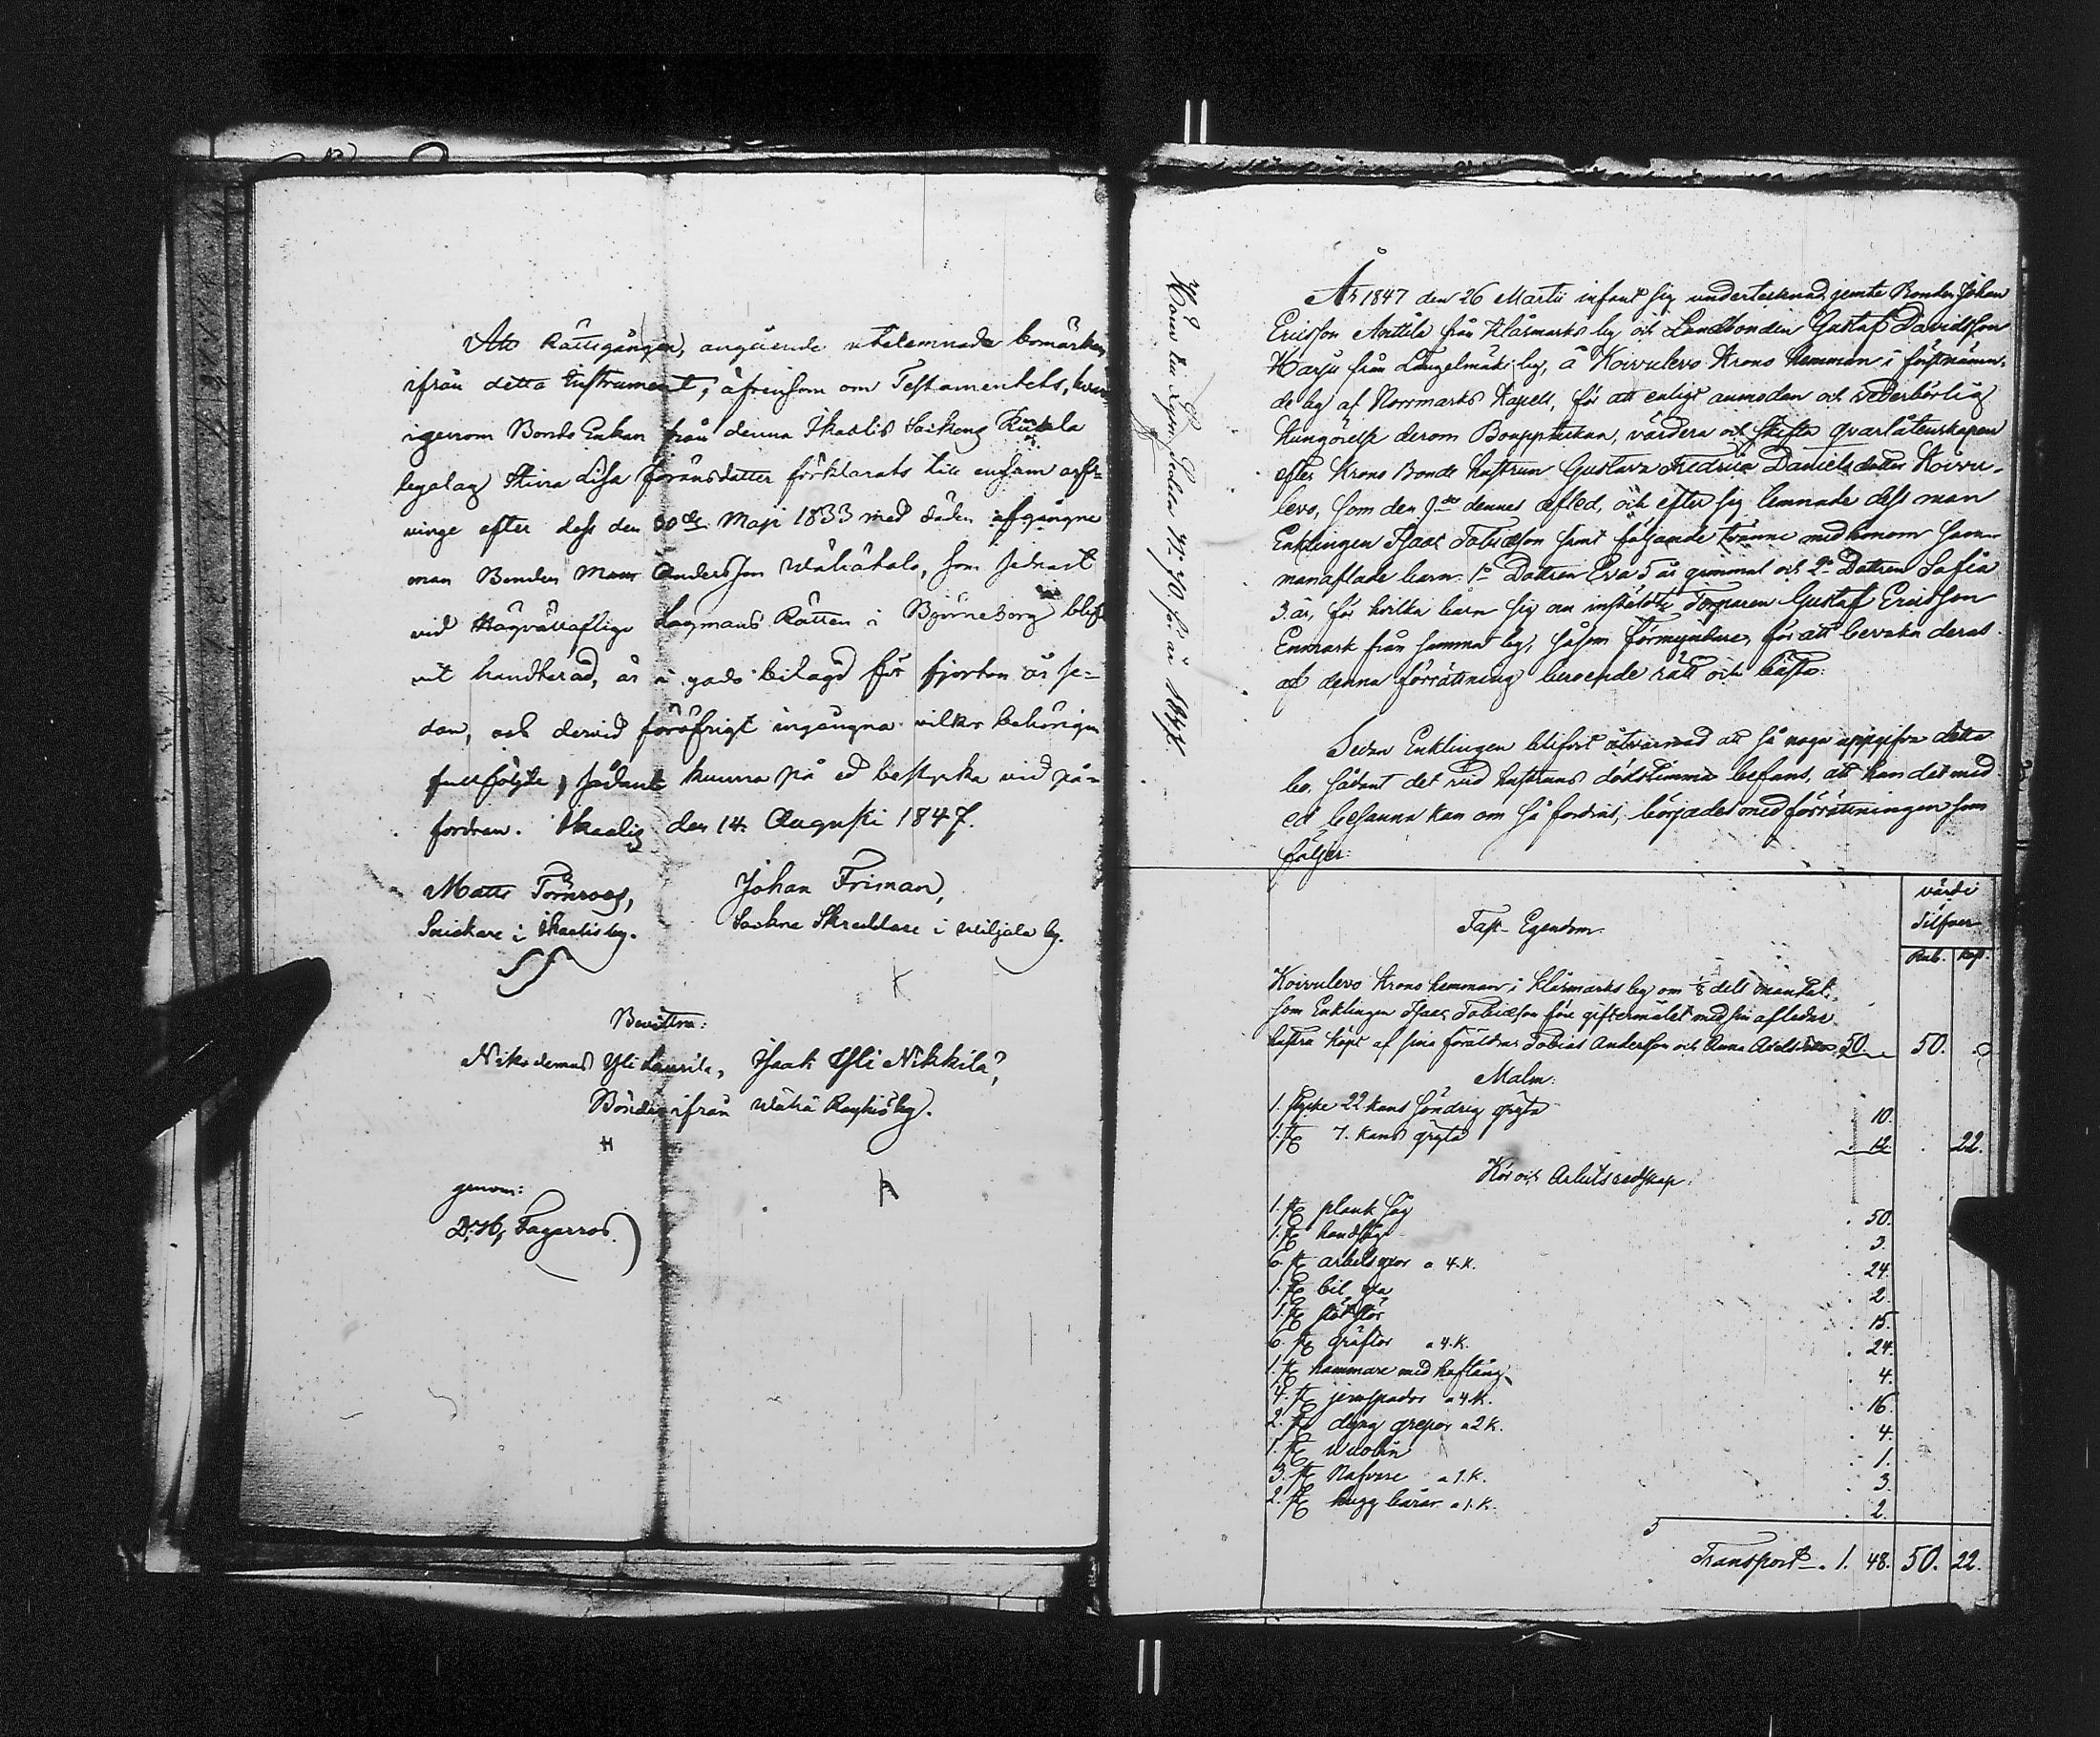 Att Rättegången, angående utelemnade bomärken
ifrån detta Instrument, äfvensom om Testamentets,
igenom Bonde Enkan från denna Ikalis Sockens
Stina Lisa Jöransdotter förklarats till ensam arf-
vinge efter dess den 30de Maji 1833 med döden afgångne
man Bonden Matts Andersson Wähätalo, som sednast
vid Högrättsaflige Lagmans Rätten i Björneborg blif-
vit handterad, är bilagd för fjorton år se-
dan, och dervid föröfrigt ingångna vilkor behörigen
fullföljde, sådant kunna på ed bestyrka vid på-
fordran. Ikalis den 14 Augusti 1847.
Matts Törnroos, Johan Friman,
Snickare i Ikalis by. Sockne Skreddare i Wiljala by.
Bevittna:
Nikodemus Yli Laurila, Isaak Yli Nikkilä,
Bönder ifrån Wähä Röyhiö by.
genom:
D. H. Fagerroos.
Hörer till Regn. Protoc. No 70 för år 1847.
År 1847 den 26 Martii infant sig undertecknad jemte Bonden Johan
Ericsson Anttila från Klåsmarks by och Landbonden Gustaf Davidsson
Harju från Längelmäki by, å Koivulevo Krono hemman i förstnämn-
de by af Norrmarks Kapell, för att enligt anmodan och vederbörlig
kungörelse derom Boupptekna, värdera och skifta qvarlåtenskapen
efter Krono Bonde hustrun Gustava Fredrica Danielsdotter Koivu-
levo, som den 9de dennes afled, och efter sig lemnade dess man
Enklingen Isaac Tobiasson samt följande tvänne med honom sam-
manaflade barn: 1o Dottren Eva 5 år gammal och 2o Dottren Sofia
3 år, för hvilka barn sig nu inställde Torparen Gustaf Ericsson
Enmark från samma by, såsom förmyndare, för att bevaka deras
af denna förrättning beroende rätt och bästa.
Sedan Enklingen blifvit åtvarnad att så noga uppgifva detta
bo, sådant det vid hustruns dödstimma befans, att han det med
ed besanna kan om så fordras, börjades med förrättningen som
följer:
värde
Silfver
Rub. Kop.
Fast Egendom
Koivulevo Krono hemman i Klåsmarks by om 1/8 dels mantal,
som Enklingen Isaac Tobiasson före giftermålet med sin aflidne
hustru köpt af sina föräldrar Tobias Andersson och Anna 50. 50.
Malm:
1. stycke 22 kans söndrig gryta 10.
1. st 7. kans gryta 12. 22.
Kör och Arbets redskap:
1. st plank såg 50.
1. st handsåg 3.
6. st arbetsyxor a 4. K. 24.
1. st bil yxa 2.
1. st 15.
6. st gräftor a 4. K. 24.
1. st hammare med hoftång 4.
4. st jernspador a 4 K. 16.
2. st dyng grepar a 2 K. 4.
1. st 1.
3. st Nafvare a 1. K. 3.
2. st hugg a 1. K. 2.
Transport 1. 48. 50. 22.